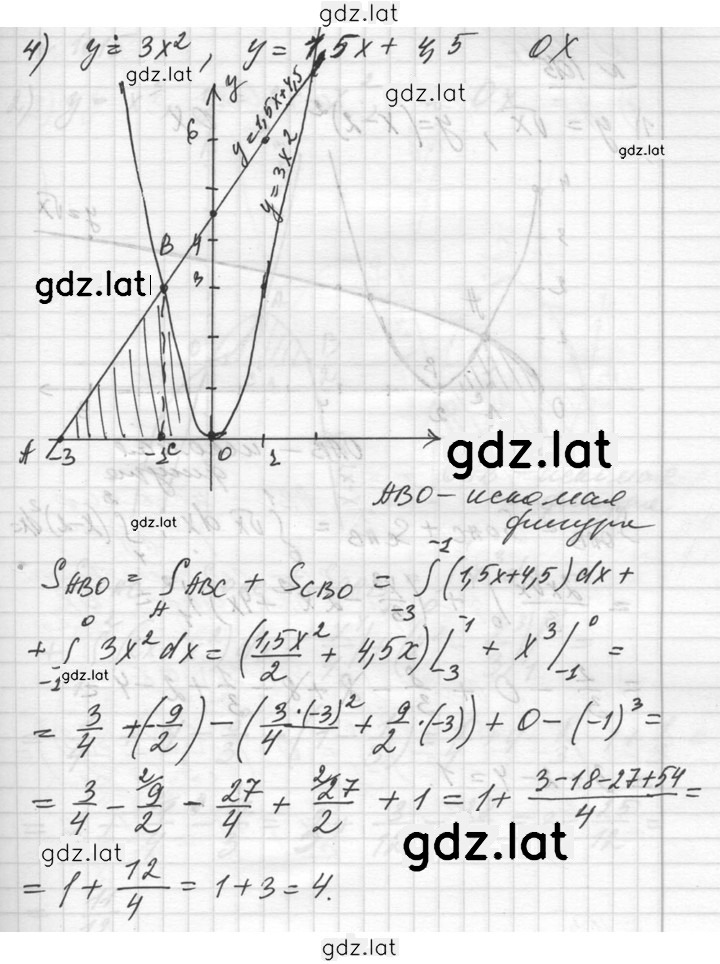 gdz.lat
4) y = 3x², y = 1,5x + 4,5 OX
gdz.lat
gdz.lat
gdz.lat
y
y=1,5x+4,5
y=3x²
6
B
4
3
gdz.lat
y=√x
A -3 -1 C 0 1
gdz.lat
ABO - искомая
фигура
gdz.lat
S_ABO = S_ABC + S_CBO = ∫_{-3}^{-1} (1,5x+4,5)dx +
+ ∫_{-1}^{0} 3x²dx = (1,5x²/2 + 4,5x)|_{-3}^{-1} + x³|_{-1}^{0} =
gdz.lat
= 3/4 + (-9/2) - (3·(-3)²/4 + 9/2·(-3)) + 0 - (-1)³ =
= 3/4 - 9/2 - 27/4 + 27/2 + 1 = 1 + (3-18-27+54)/4 =
gdz.lat
gdz.lat
= 1 + 12/4 = 1+3 = 4.
gdz.lat